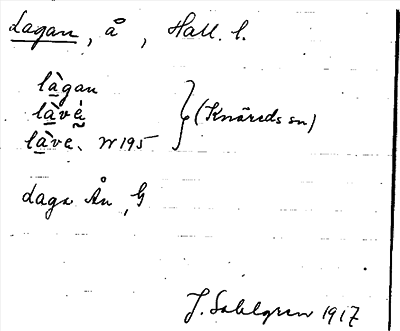 Lagan, å, Hall. l.
làgan
làvè̱
làve. W195
(Knäreds sn)
Laga Ån, G
J. Sahlgren 1917